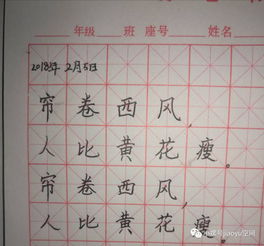 年级 班 座号 姓名
2018年2月5日
帘卷西风,
人比黄花瘦。
帘卷西风,
人比黄花瘦。